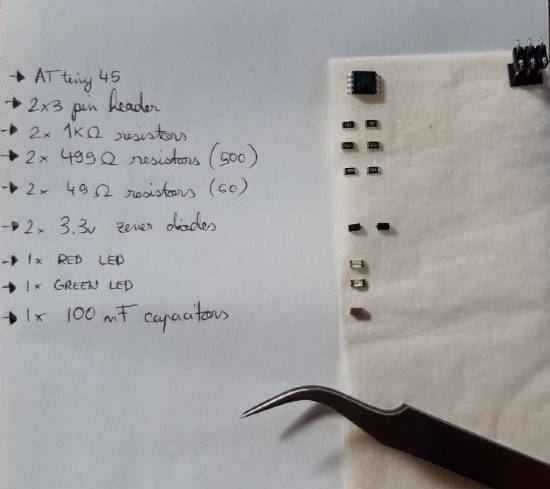 → ATtiny 45
→ 2x3 pin header
→ 2x 1KΩ resistors
→ 2x 499Ω resistors (500)
→ 2x 49Ω resistors (50)
→ 2x 3.3v zener diodes
→ 1x RED LED
→ 1x GREEN LED
→ 1x 100 nF capacitors